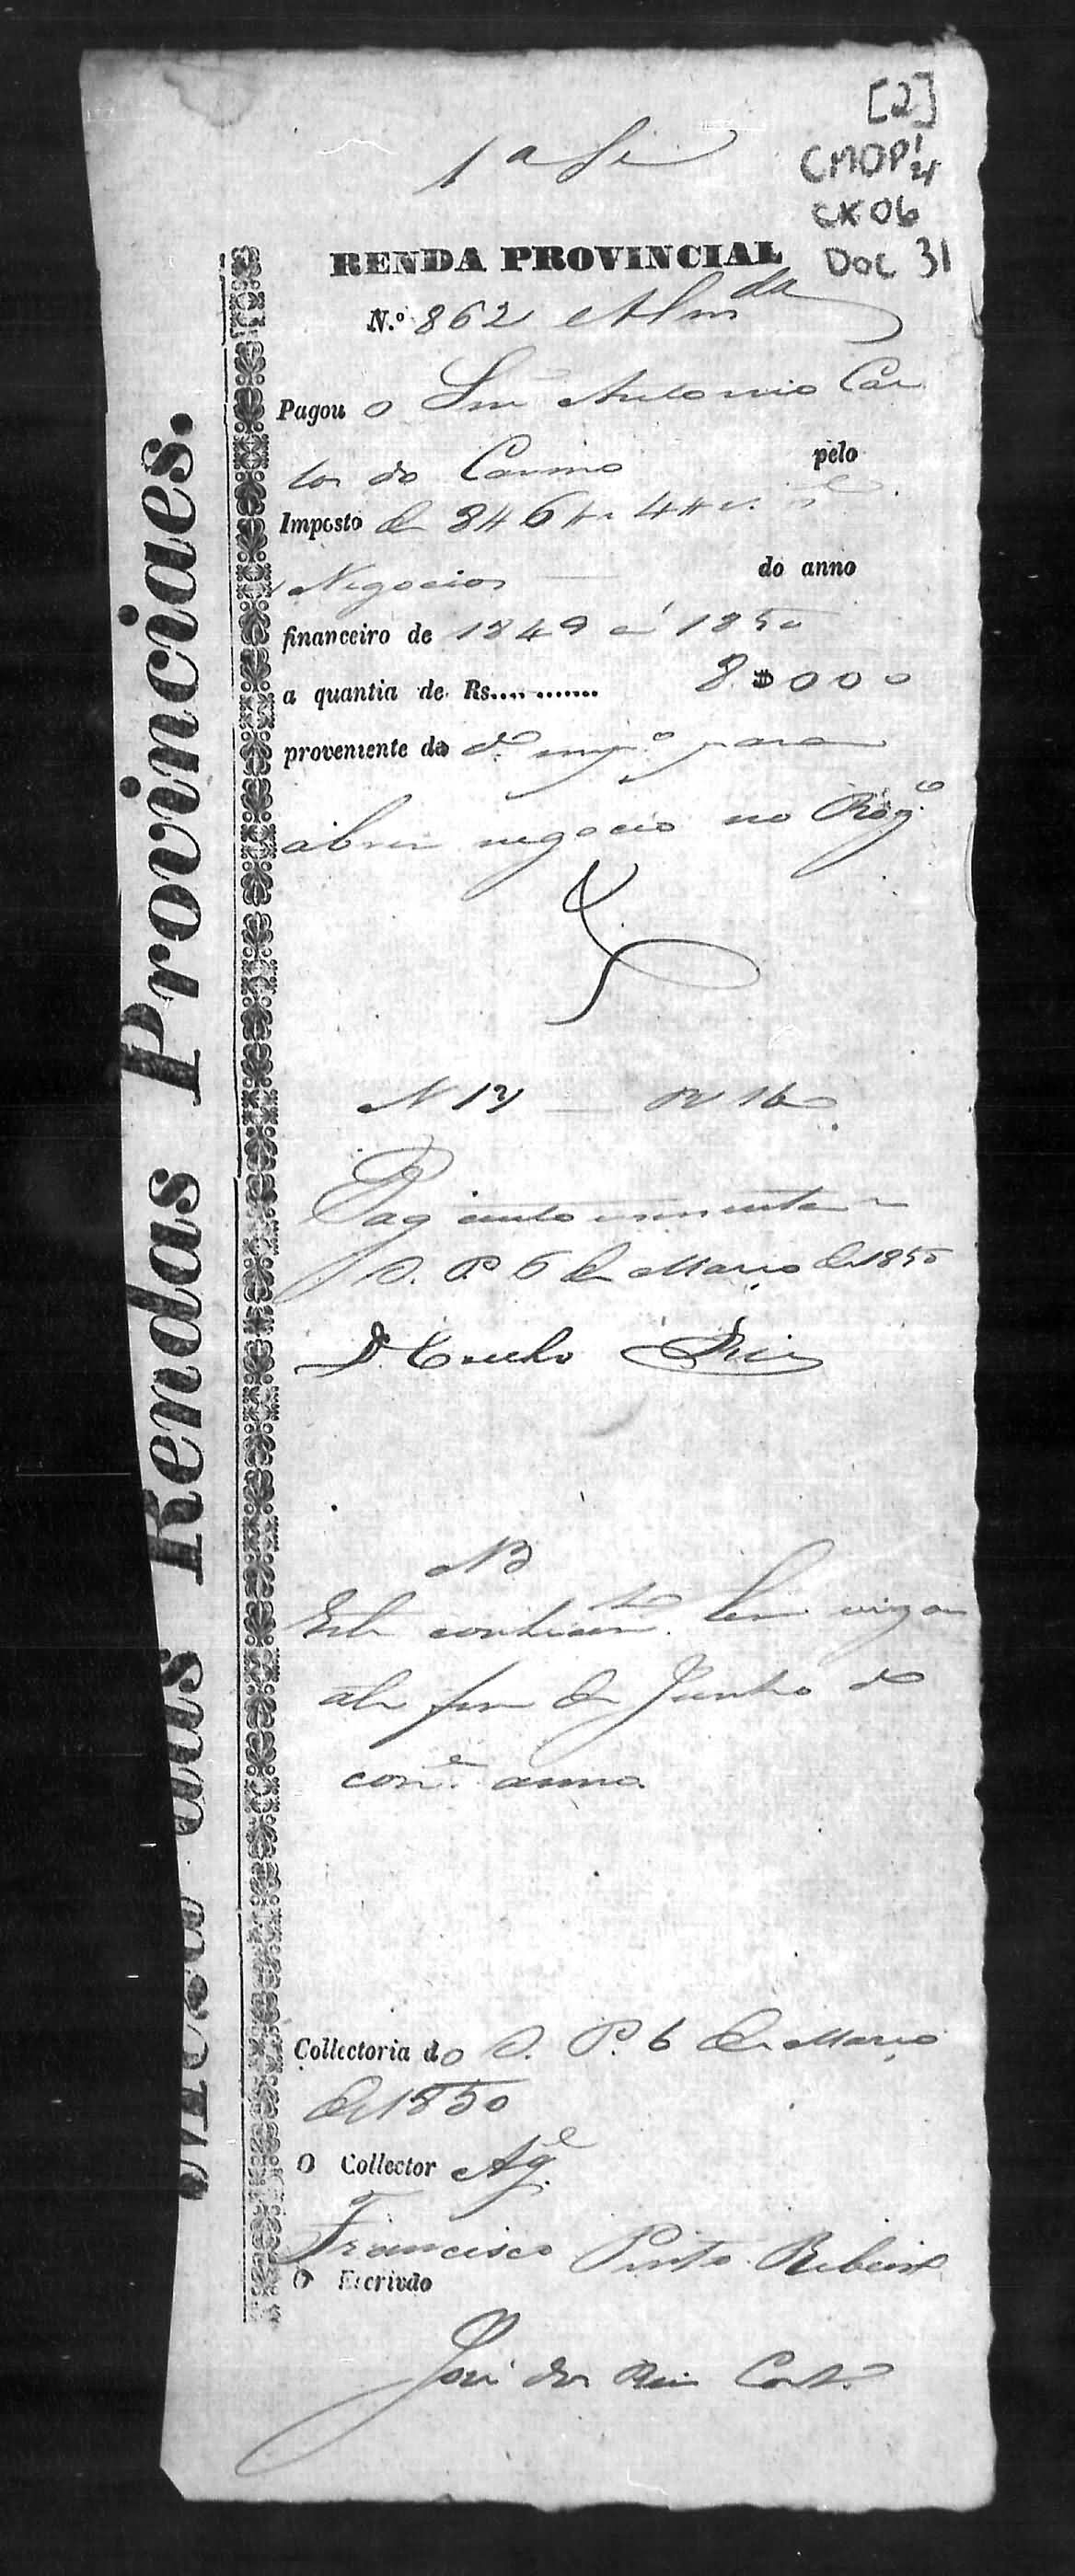 [2]
CMOP 1/4
CX 06
DOC 31
1a Se
RENDA PROVINCIAL
N.º 862
Pagou o Snr Antonio Car
los do Carmo pelo
Imposto de
Negocios do anno
financeiro de 1849 á 1850
a quantia de Rs........... 8$000
proveniente do do imp.o para
abrir negocio no
N 13
Pag
O. P. 6 de Março de 1850
D. Coelho Reis
NB
Este conhecim.to tem vigor
ate fim de Junho do
corr.e anno.
Collectoria do O. P. 6 de Março
de 1850
O Collector Ag.e
Francisco Pinto Ribeiro
O Escrivão
José dos Reis
Mesa das Rendas Provinciaes.